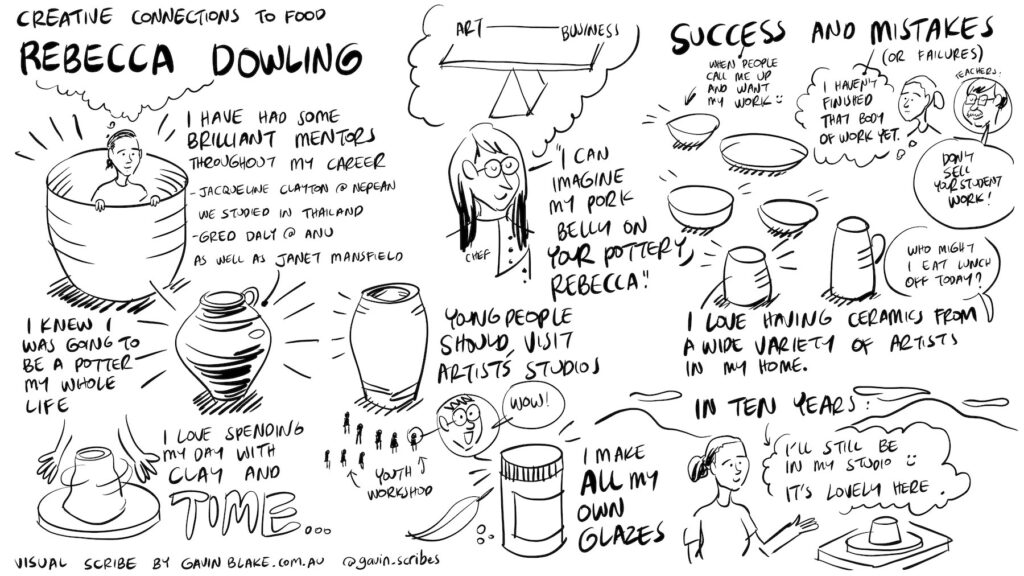 CREATIVE CONNECTIONS TO FOOD
REBECCA DOWLING
I HAVE HAD SOME
BRILLIANT MENTORS
THROUGHOUT MY CAREER
- JACQUELINE CLAYTON @ NEPEAN
WE STUDIED IN THAILAND
- GREG DALY @ ANU
AS WELL AS JANET MANSFIELD
I KNEW I
WAS GOING TO
BE A POTTER
MY WHOLE
LIFE
I LOVE SPENDING
MY DAY WITH
CLAY AND
TIME...
ART
BUSINESS
CHEF
"I CAN
IMAGINE
MY PORK
BELLY ON
YOUR POTTERY,
REBECCA."
YOUNG PEOPLE
SHOULD VISIT
ARTISTS' STUDIOS
WOW!
YOUTH
WORKSHOP
I MAKE
ALL MY
OWN
GLAZES
SUCCESS AND MISTAKES
(OR FAILURES)
WHEN PEOPLE
CALL ME UP
AND WANT
MY WORK
I HAVEN'T
FINISHED
THAT BODY
OF WORK YET.
TEACHERS:
DON'T
SELL
YOUR STUDENT
WORK!
WHO MIGHT
I EAT LUNCH
OFF TODAY?
I LOVE HAVING CERAMICS FROM
A WIDE VARIETY OF ARTISTS
IN MY HOME.
IN TEN YEARS:
I'LL STILL BE
IN MY STUDIO
IT'S LOVELY HERE.
VISUAL SCRIBE BY GAVIN BLAKE.COM.AU @gavin_scribes